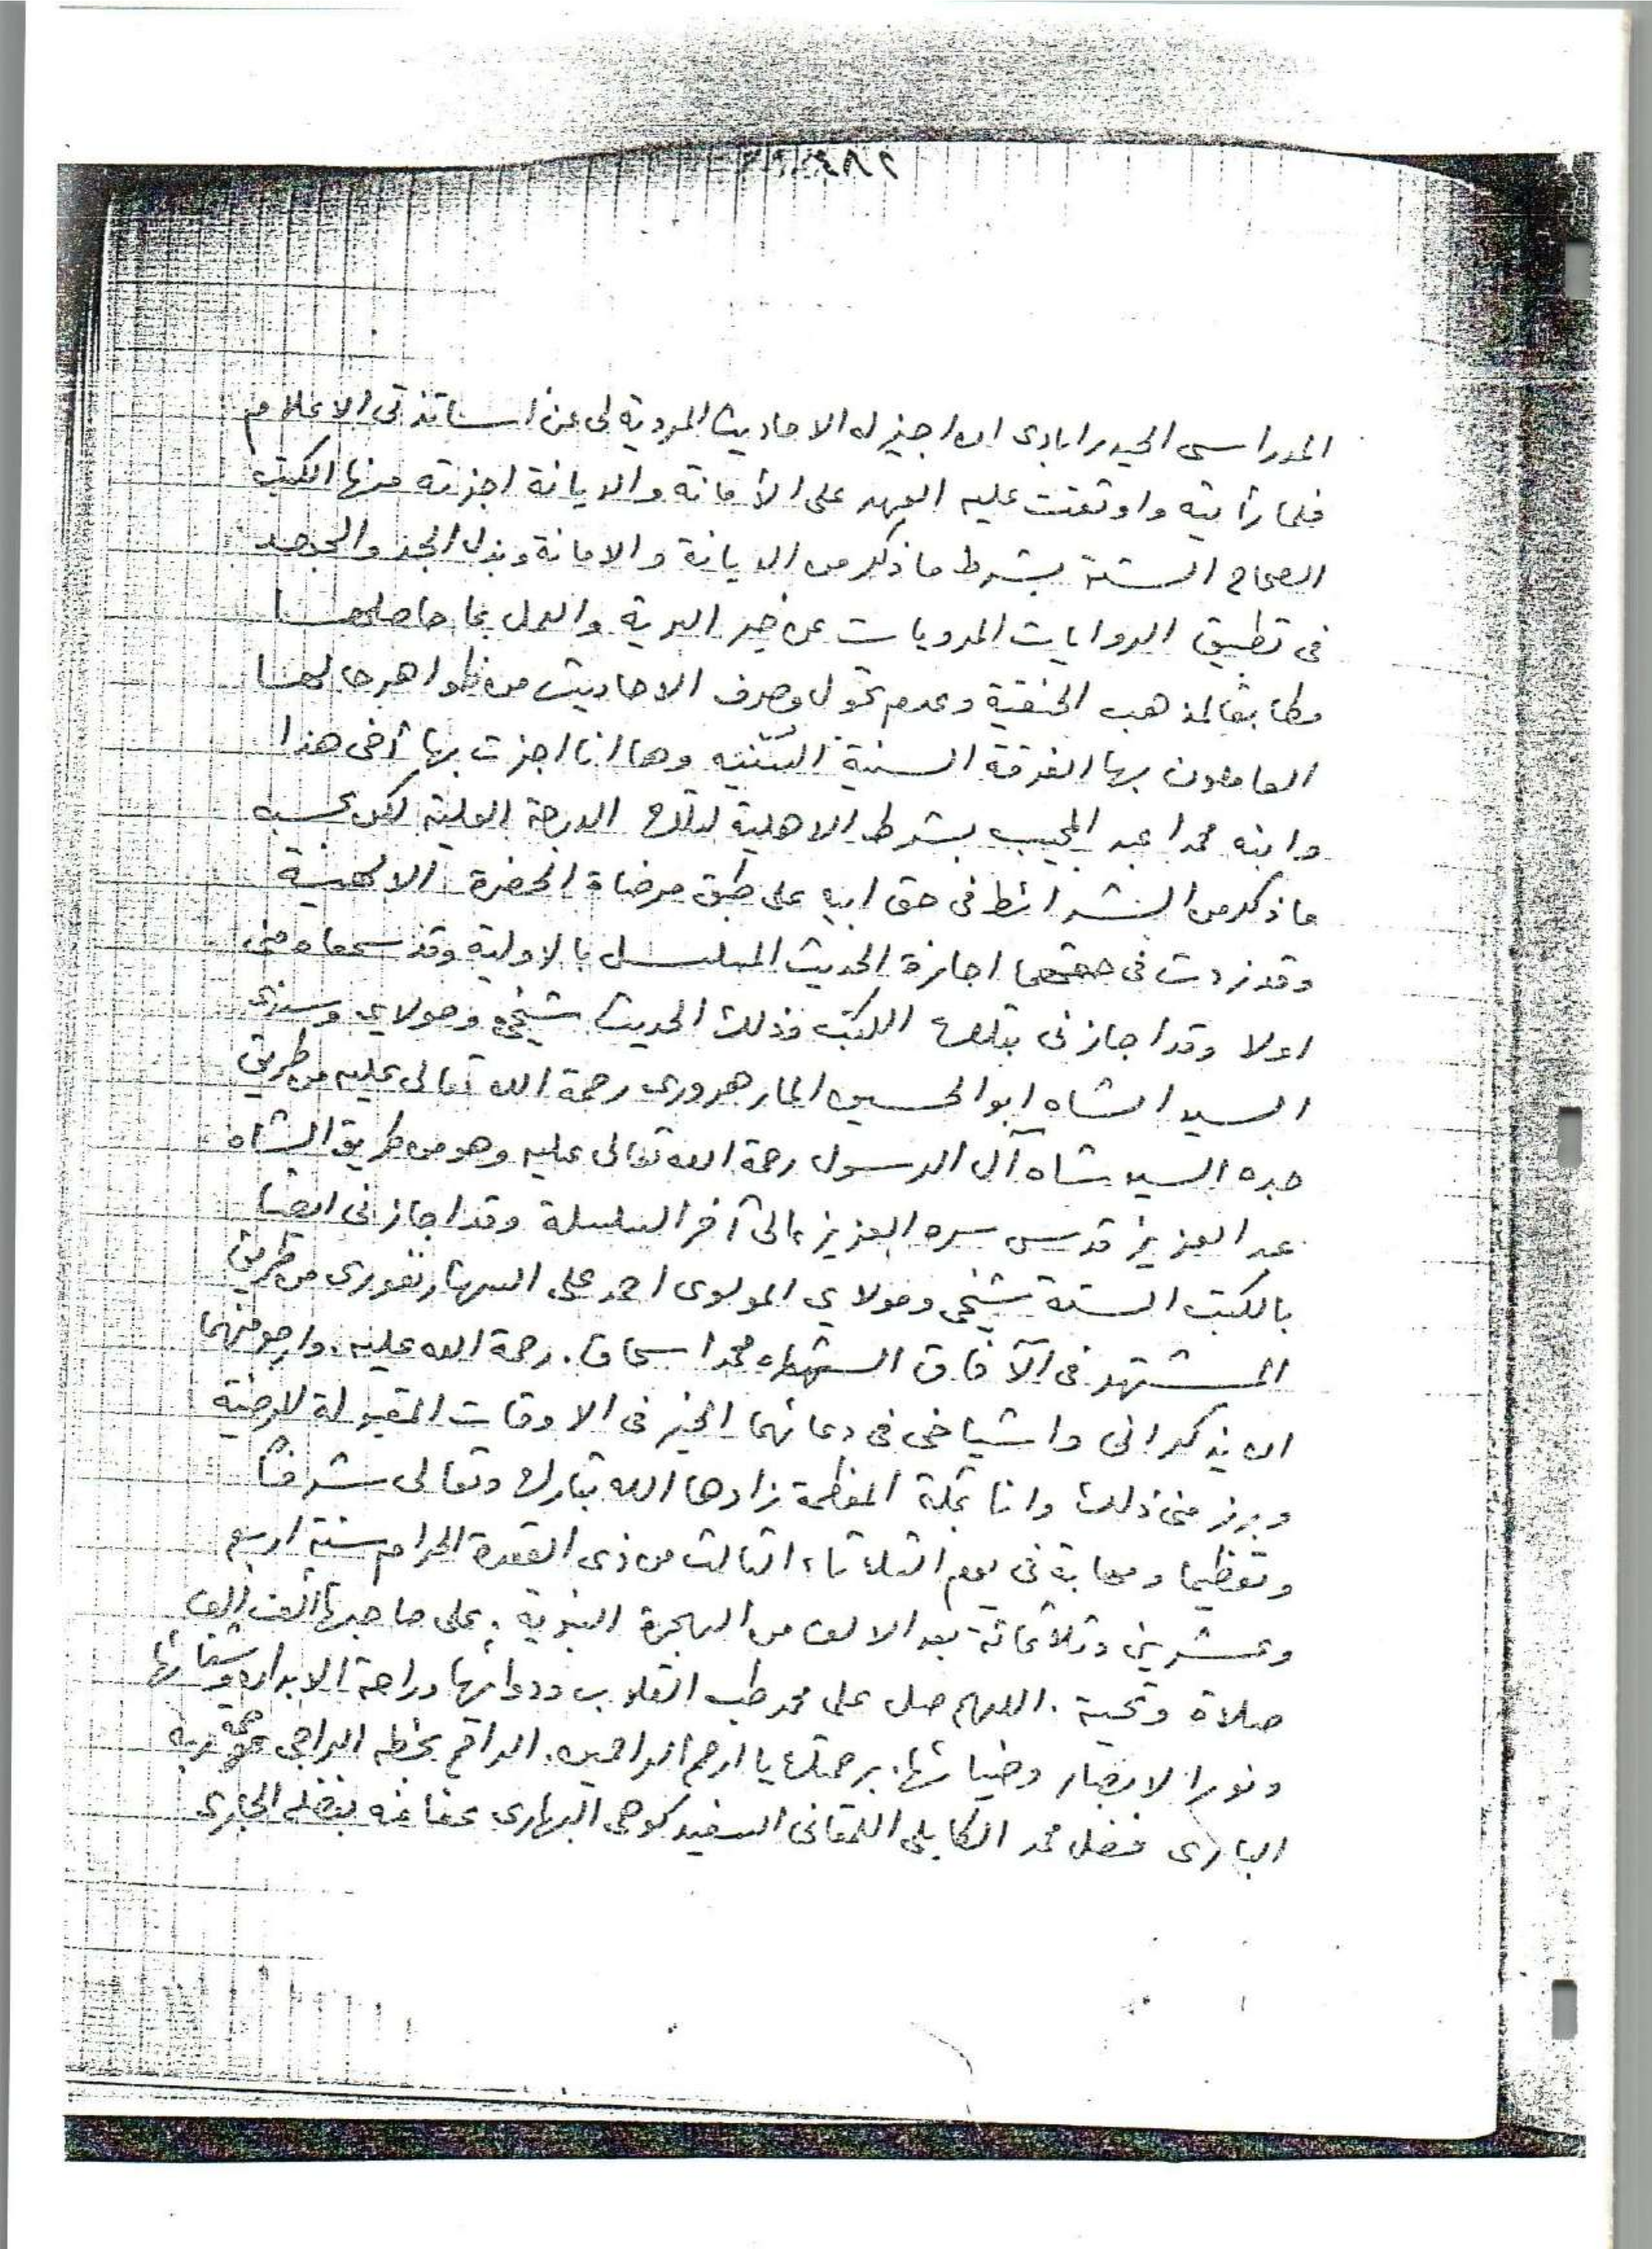 ٢٨٢
المدراسى الحيدرابادى ان اجيز له الاحاديث المروية لى عن اساتذتى الاعلام
فلما رأيته واوثقت عليه العهد على الأمانة والديانة اجزته منها الكتب
الصحاح الستة بشرط ما ذكر من الديانة والامانة وبذل الجد والجهد
فى تطبيق الروايات المرويات عن خير البرية والعمل بما حاصلها
مطابقا لمذهب الحنفية وعدم تحول وصرف الاحاديث من ظواهرها لها
العاملون بها الفرقة السنية السنيه وها انا اجزت بها أخى هذا
وابنه محمدا عبد المجيب بشرط الاهلية لتلك الدرجة العلية لكن بحسبه
ما ذكر من الشرائط فى حق ابيه على طبق مرضاة الحضرة الالهية
وقد زدت فى حقهما اجازة الحديث المسلسل بالاولية وقد سمعاه منى
اولا وقد اجازنى بتلك الكتب وذلك الحديث شيخى ومولاي وسندى
السيد الشاه ابو الحسين المارهروى رحمة الله تعالى عليه من طريق
جده السيد شاه آل الرسول رحمة الله تعالى عليه وهو من طريق الشاه
عبد العزيز قدس سره العزيز الى آخر السلسلة وقد اجازنى ايضا
بالكتب الستة شيخى ومولاي المولوى احمد على السهارنفورى من طريق
المشتهر فى الآفاق الشاه محمد اسحاق. رحمة الله عليه. وارجو منهما
ان يذكرانى واشياخى فى دعائهما الخير فى الاوقات المقبولة المرضية
وبرز منى ذلك وانا بمكة المعظمة زادها الله تبارك وتعالى شرفاً
وتعظيما ومهابة فى يوم الثلاثاء الثالث من ذى القعدة الحرام سنة اربع
وعشرين وثلاثمائة بعد الالف من الهجرة النبوية. على صاحبها ألف ألف
صلاة وتحية. اللهم صل على محمد طب القلوب ودوائها وراحة الابدان وشفائها
ونور الابصار وضيائها. برحمتك يا ارحم الراحمين. الراقم بخطه الراجى رحمة ربه
البارى فضل محمد الكابلى اللمقانى السفيد كوهى البهارى عفا عنه بفضله الجارى